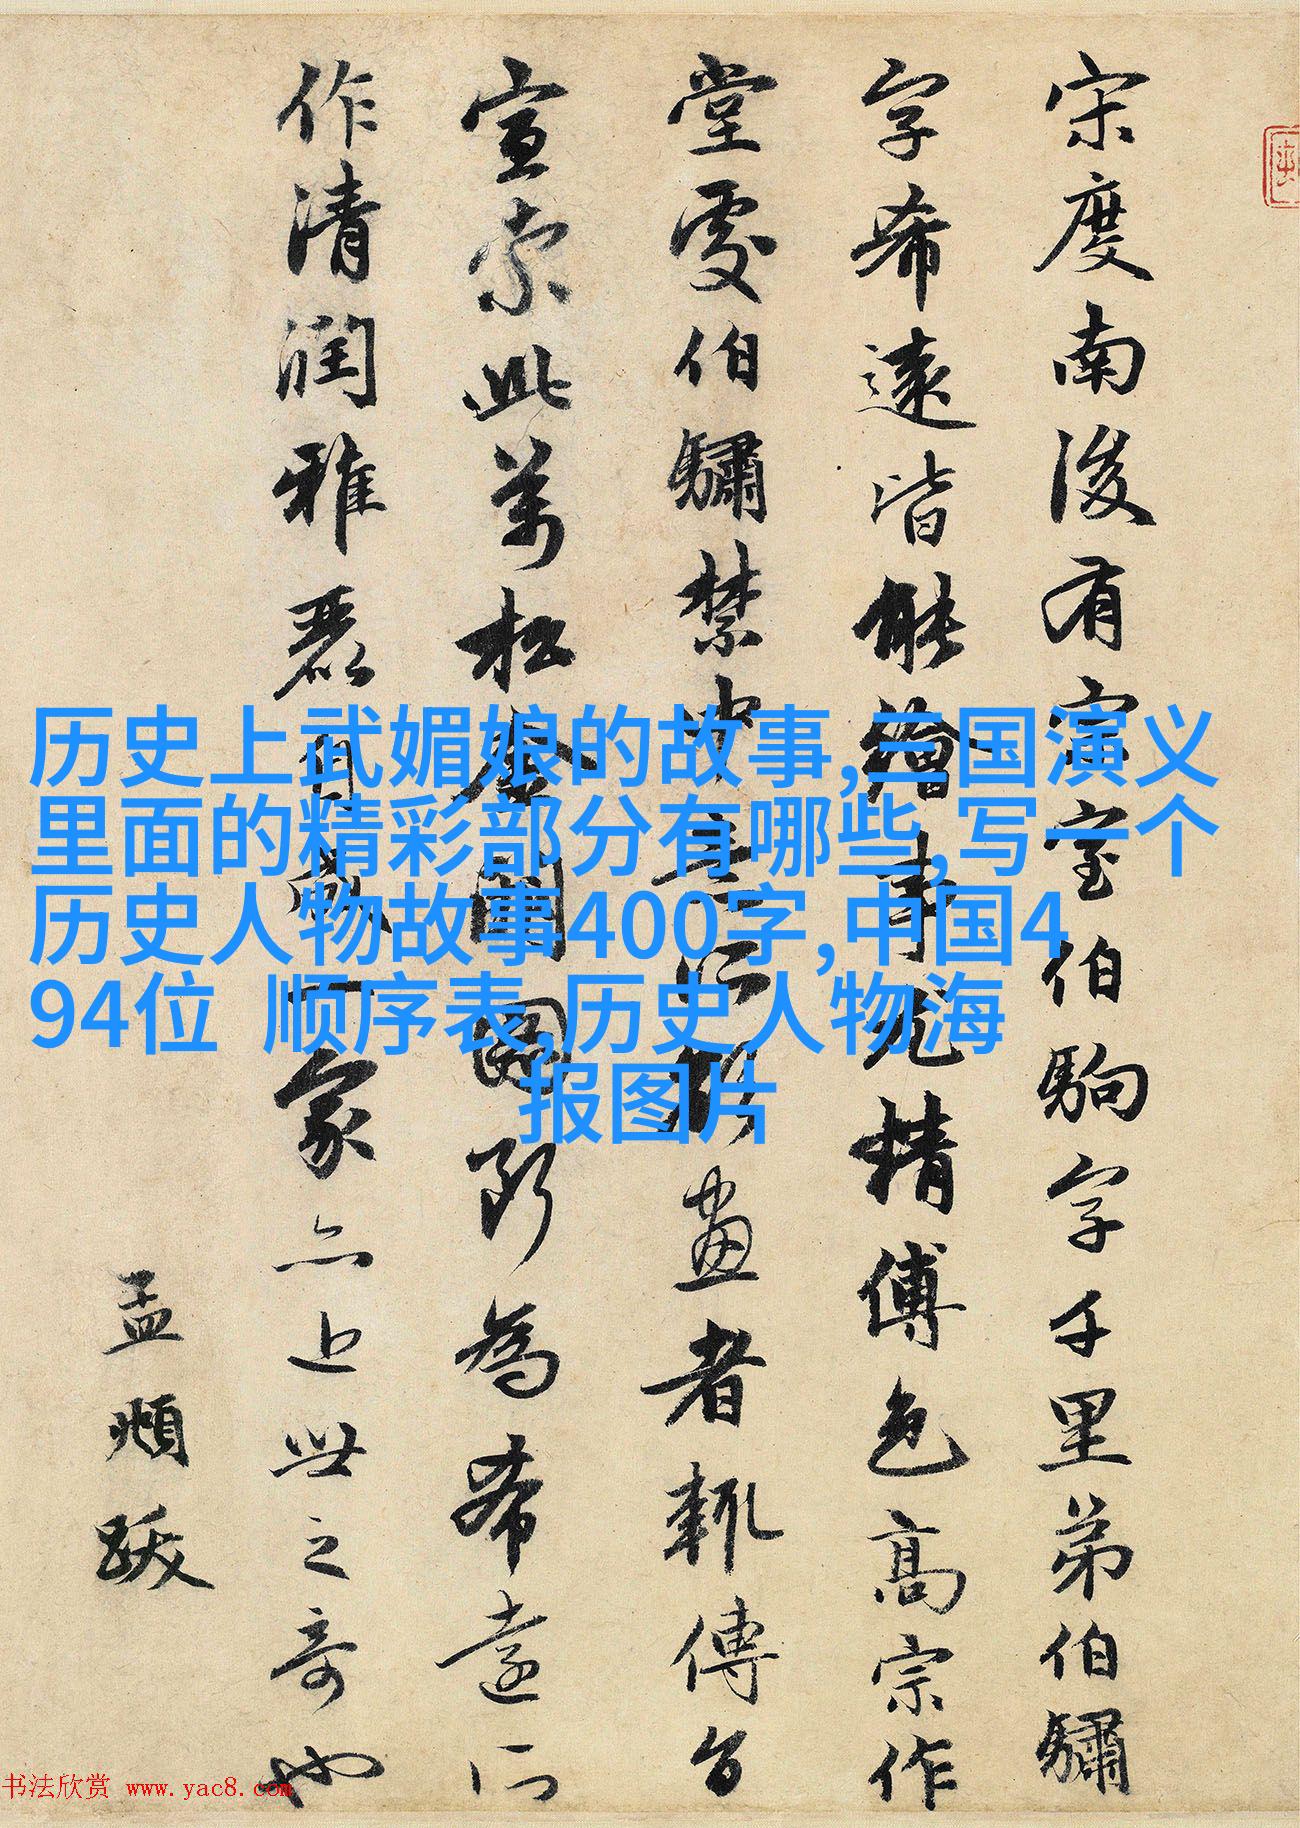 宋度南後有宗室伯駒字千里弟伯驌
字希遠皆能繪事尤精傅色高宗作
堂處伯驌禁中意所欲畫者輒傳旨
宣索此萬松金闕圖斷為希遠所
作清潤雅麗自成一家亦近世之奇也
孟頫跋
历史上武媚娘的故事,三国演义
里面的精彩部分有哪些,写一个
历史人物故事400字,中国4
94位 顺序表,历史人物海
报图片
书法欣赏 www.yac8.com